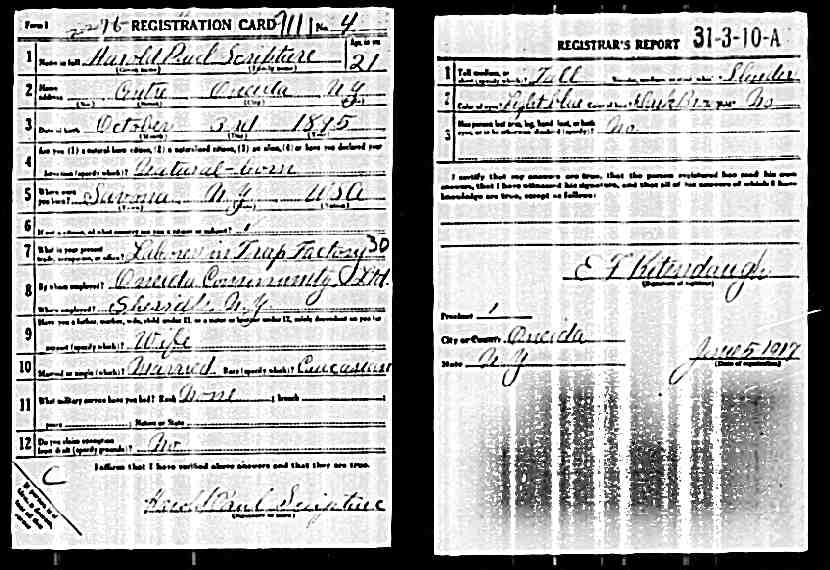 Form 1 2276 REGISTRATION CARD 711 No. 4
1 Name in full Harold Paul Scripture Age, in yrs 21
(Given name) (Family name)
2 Home address Ontre Oneida N Y
(No.) (Street) (City) (State)
3 Date of birth October 3rd 1895
(Month) (Day) (Year)
4 Are you (1) a natural-born citizen, (2) a naturalized citizen, (3) an alien, (4) or have you declared your
intention (specify which)? Natural-born
5 Where were you born? Savona N Y USA
(Town) (State) (Nation)
6 If not a citizen, of what country are you a citizen or subject?
7 What is your present trade, occupation, or office? Laborer in Trap Factory 30
8 By whom employed? Oneida Community Ltd.
Where employed? Sherrill N.Y.
9 Have you a father, mother, wife, child under 12, or a sister or brother under 12, solely dependent on you for
support (specify which)? Wife
10 Married or single (which)? Married Race (specify which)? Caucasian
11 What military service have you had? Rank None ; branch
years ; Nation or State
12 Do you claim exemption from draft (specify grounds)? No
I affirm that I have verified above answers and that they are true.
C
Harold Paul Scripture
(Signature or mark)
REGISTRAR'S REPORT 31-3-10-A
1 Tall, medium, or short (specify which)? Tall Slender, medium, or stout (which)? Slender
2 Color of eyes? Light blue Color of hair? Dark Brown Bald? No
3 Has person lost arm, leg, hand, foot, or both
eyes, or is he otherwise disabled (specify)? No
I certify that my answers are true, that the person registered has read his own
answers, that I have witnessed his signature, and that all of his answers of which I have
knowledge are true, except as follows:
(Signature of registrar)
Precinct 1
City or County Oneida
State N Y June 5 1917
(Date of registration)